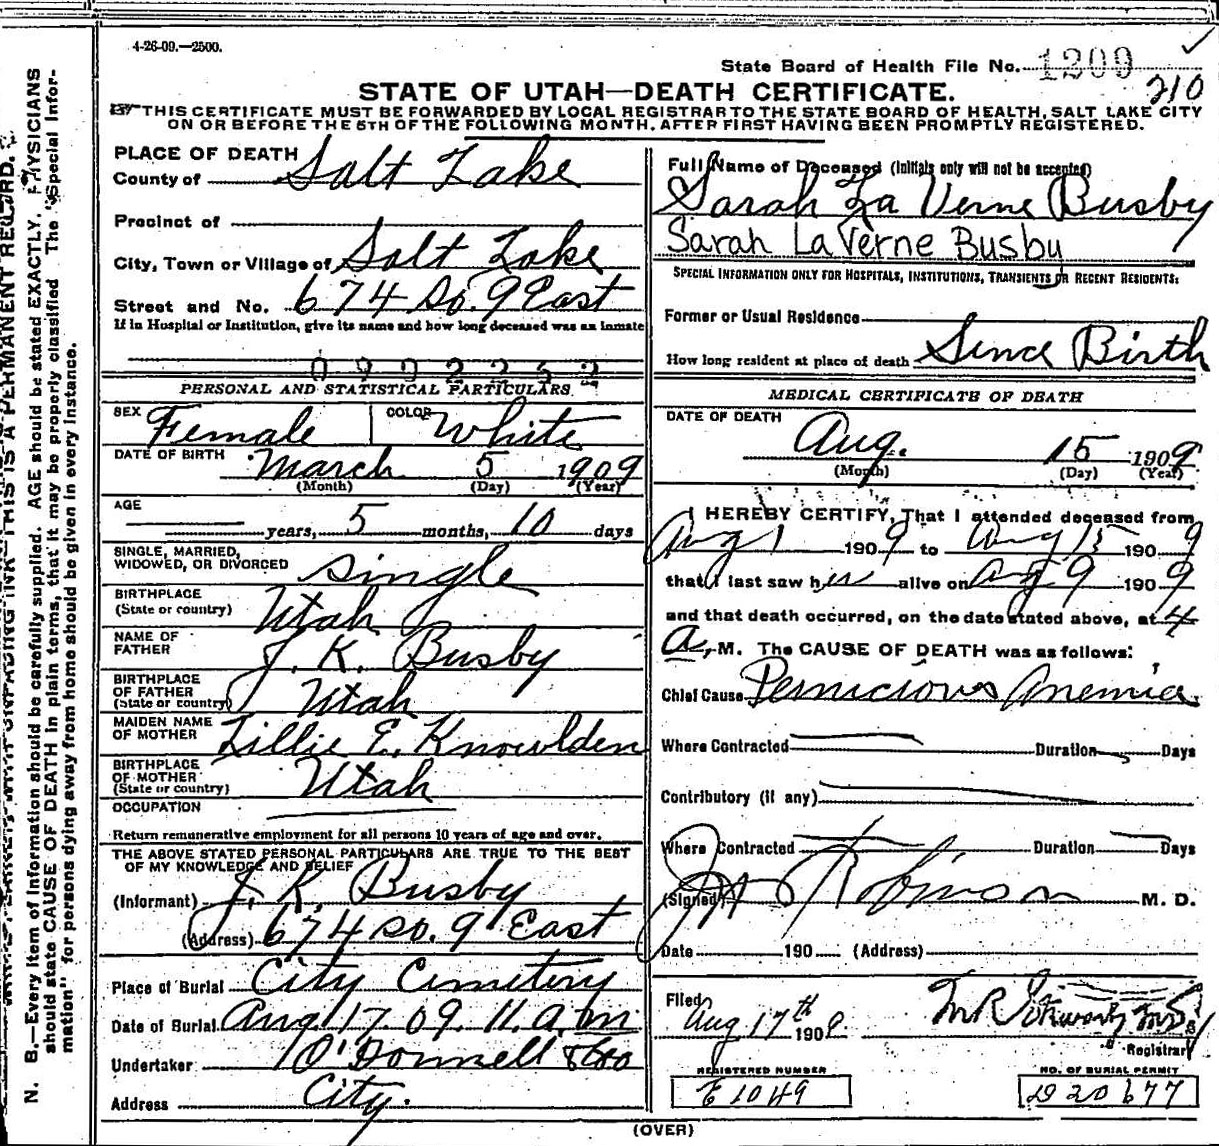 4-26-09.—2500.
State Board of Health File No. 1209
210
STATE OF UTAH—DEATH CERTIFICATE.
THIS CERTIFICATE MUST BE FORWARDED BY LOCAL REGISTRAR TO THE STATE BOARD OF HEALTH, SALT LAKE CITY
ON OR BEFORE THE 5TH OF THE FOLLOWING MONTH, AFTER FIRST HAVING BEEN PROMPTLY REGISTERED.
PLACE OF DEATH
County of Salt Lake
Precinct of
City, Town or Village of Salt Lake
Street and No. 674 So. 9 East
If in Hospital or Institution, give its name and how long deceased was an inmate
PERSONAL AND STATISTICAL PARTICULARS
SEX Female COLOR White
DATE OF BIRTH March 5 1909
(Month) (Day) (Year)
AGE
years, 5 months, 10 days
SINGLE, MARRIED,
WIDOWED, OR DIVORCED single
BIRTHPLACE
(State or country) Utah
NAME OF
FATHER J. K. Busby
BIRTHPLACE
OF FATHER
(State or country) Utah
MAIDEN NAME
OF MOTHER Lillie E. Knowlden
BIRTHPLACE
OF MOTHER
(State or country) Utah
OCCUPATION
Return remunerative employment for all persons 10 years of age and over.
THE ABOVE STATED PERSONAL PARTICULARS ARE TRUE TO THE BEST
OF MY KNOWLEDGE AND BELIEF
(Informant) J. K. Busby
(Address) 674 So. 9 East
Place of Burial City Cemetery
Date of Burial Aug. 17. 09. 11. a.m
Undertaker O'Donnell & Co
Address City.
Full Name of Deceased (Initials only will not be accepted)
Sarah La Verne Busby
Sarah LaVerne Busby
SPECIAL INFORMATION ONLY FOR HOSPITALS, INSTITUTIONS, TRANSIENTS OR RECENT RESIDENTS:
Former or Usual Residence
How long resident at place of death Since Birth
MEDICAL CERTIFICATE OF DEATH
DATE OF DEATH
Aug. 15 1909
(Month) (Day) (Year)
I HEREBY CERTIFY, That I attended deceased from
Aug 1 1909 to Aug 15 1909
that I last saw her alive on Aug 9 1909
and that death occurred, on the date stated above, at 4
A. M. The CAUSE OF DEATH was as follows:
Chief Cause Pernicious Anemia
Where Contracted Duration Days
Contributory (if any)
Where Contracted Duration Days
(Signed) Robinson M. D.
Date 190 (Address)
Filed
Aug 17th 1909
Registrar
REGISTERED NUMBER
E 1049
NO. OF BURIAL PERMIT
D 20677
(OVER)
N. B.—Every item of information should be carefully supplied. AGE should be stated EXACTLY. PHYSICIANS
should state CAUSE OF DEATH in plain terms, that it may be properly classified. The "Special Infor-
mation" for persons dying away from home should be given in every instance.